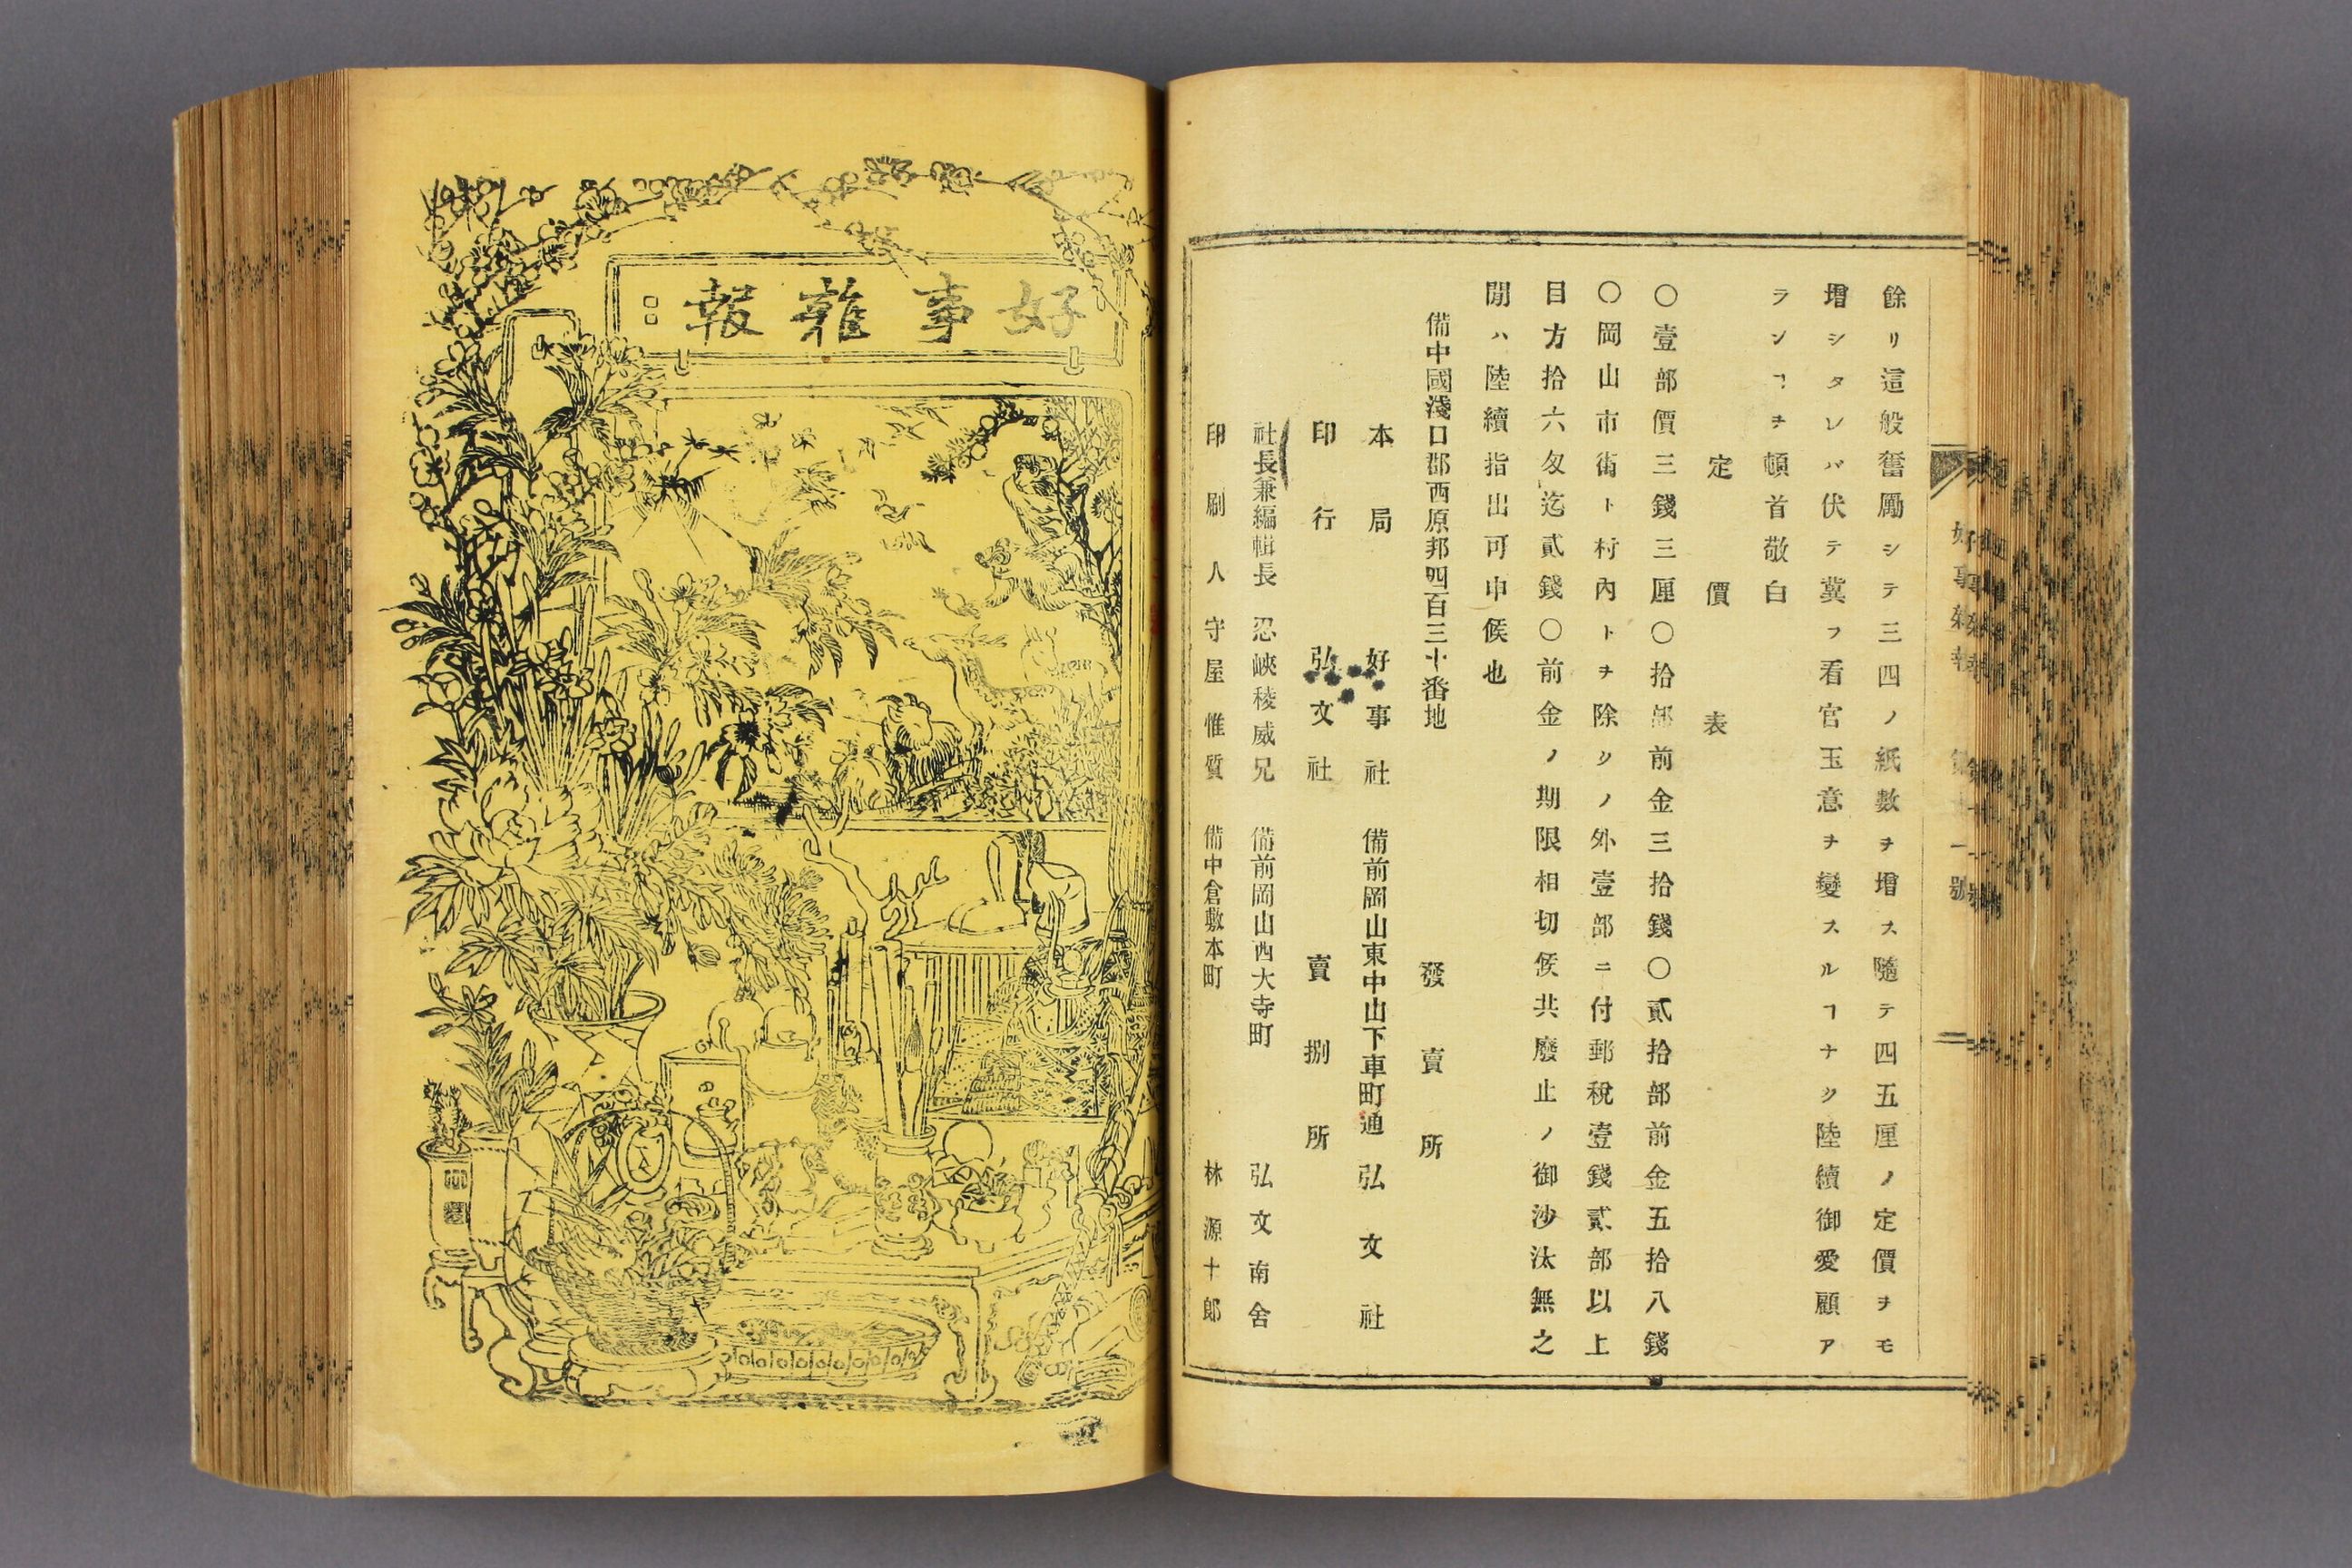 餘リ這般奮勵シテ三四ノ紙數ヲ增ス隨テ四五厘ノ定價ヲモ
增シタレバ伏テ冀フ看官玉意ヲ變スルヿナク陸續御愛顧ア
ランヿヲ頓首敬白
定價表
〇壹部價三錢三厘〇拾部前金三拾錢〇貳拾部前金五拾八錢
〇岡山市街ト村內トヲ除クノ外壹部ニ付郵稅壹錢貳部以上
目方拾六匁迄貳錢〇前金ノ期限相切候共廢止ノ御沙汰無之
間ハ陸續指出可申候也
備中國淺口郡西原邦四百三十番地 發賣所
本局 好事社 備前岡山東中山下車町通 弘文社
印行 弘文社 賣捌所
社長兼編輯長 忍峽稜威兄 備前岡山西大寺町 弘文南舍
印刷人 守屋惟質 備中倉敷本町 林源十郎
好事雜報
好事雜報